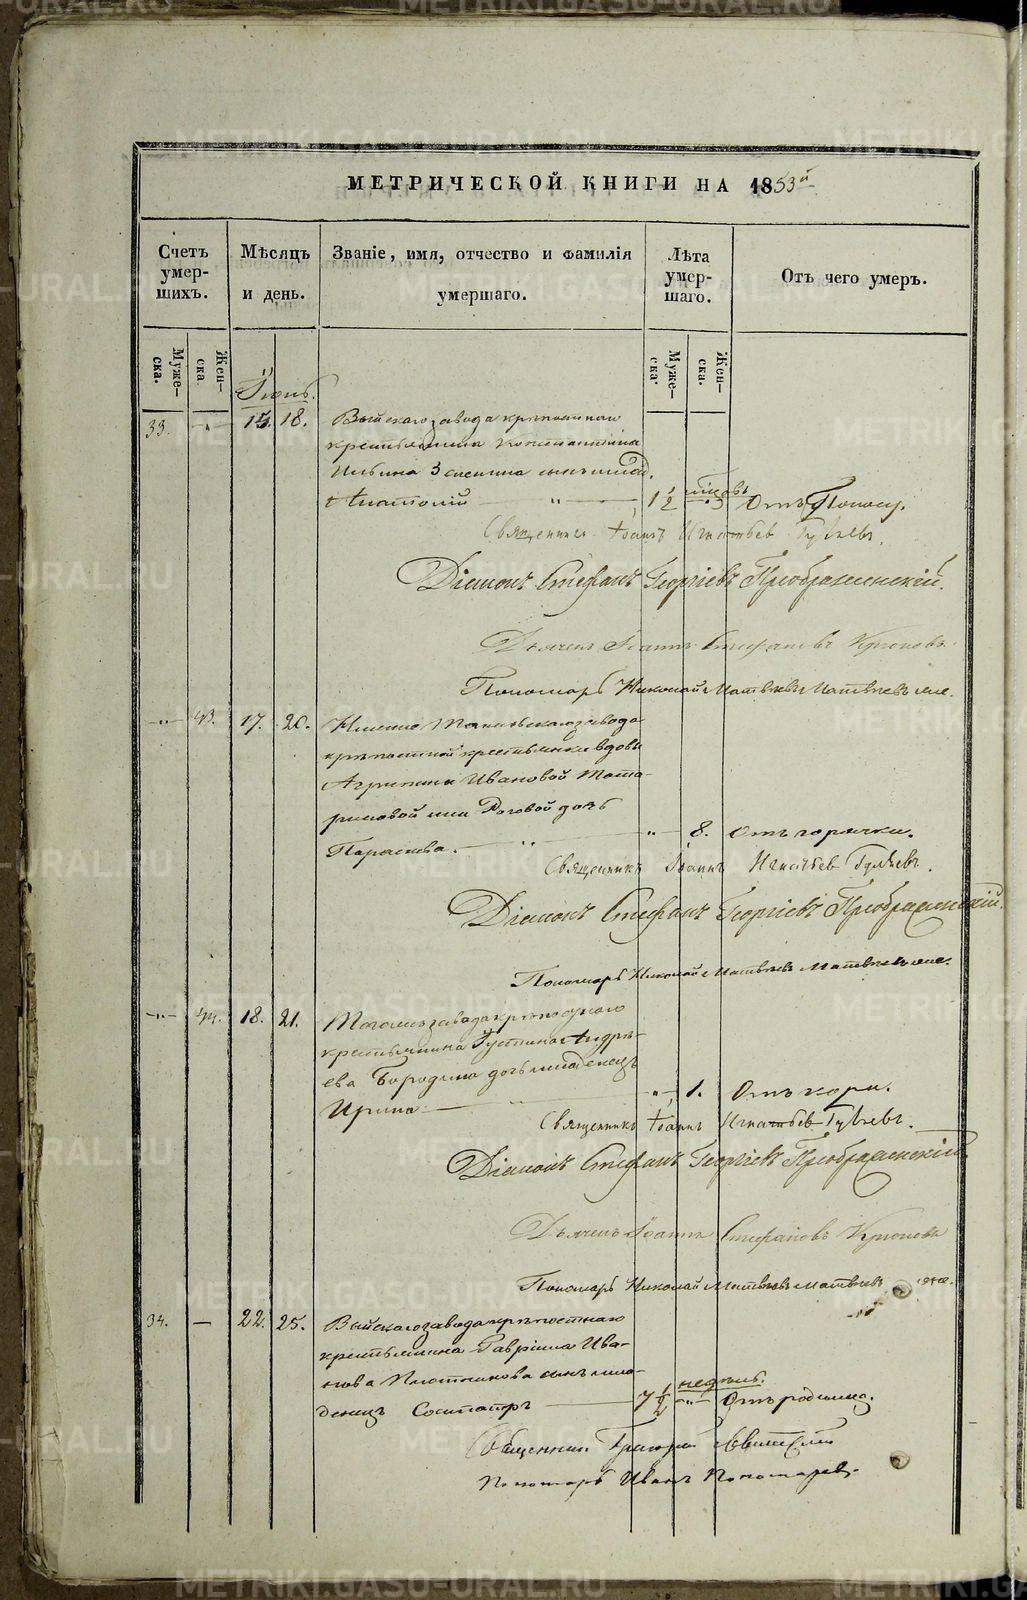 МЕТРИЧЕСКОЙ КНИГИ НА 1853й
Счетъ умер-шихъ.
Мѣсяцъ и день.
Званіе, имя, отчество и фамилія умершаго.
Лѣта умер-шаго.
Отъ чего умеръ.
Муже-ска.
Жен-ска
Муже-ска.
Жен-ска.
Іюнь.
33. -"- 15. 18. Выйскаго завода крѣпостнаго
крестьянина Константина
Ильина сынъ млад.
Анатолій " 1 1/2 Отъ Поносу.
Священникъ Іоаннъ Игнатьевъ
Діаконъ Стефанъ Георгіевъ Преображенскій.
Дьячекъ Іоаннъ Стефановъ Крюковъ.
Пономарь Николай Матвѣевъ Матвѣевъ
-"- 17. 20. Нижне Тагильскаго завода
крѣпостной крестьянки вдовы
Агрипины Ивановой Тата-
риновой или Роговой дочь
Параскева. " -"- 8. Отъ горячки.
Священникъ Іоаннъ Игнатьевъ
Діаконъ Стефанъ Георгіевъ Преображенскій.
Пономарь Николай Матвѣевъ Матвѣевъ
-"- 18. 21. Тогожъ завода крѣпостнаго
крестьянина Густина Андрѣ-
ева Бородина дочь младенецъ
Ирина " -"- 1. Отъ кори.
Священникъ Іоаннъ Игнатьевъ
Діаконъ Стефанъ Георгіевъ Преображенскій.
Дьячекъ Іоаннъ Стефановъ Крюковъ
Пономарь Николай Матвѣевъ Матвѣевъ
34. — 22. 25. Выйскаго завода крѣпостнаго
крестьянина Гавріила Ива-
нова Плотникова сынъ мла-
денецъ Сосипатръ 7 1/2 недѣль. -"- Отъ родимца.
Священникъ Григорій
Пономарь Иванъ Пономаревъ.
METRIKI.GASO-URAL.RU